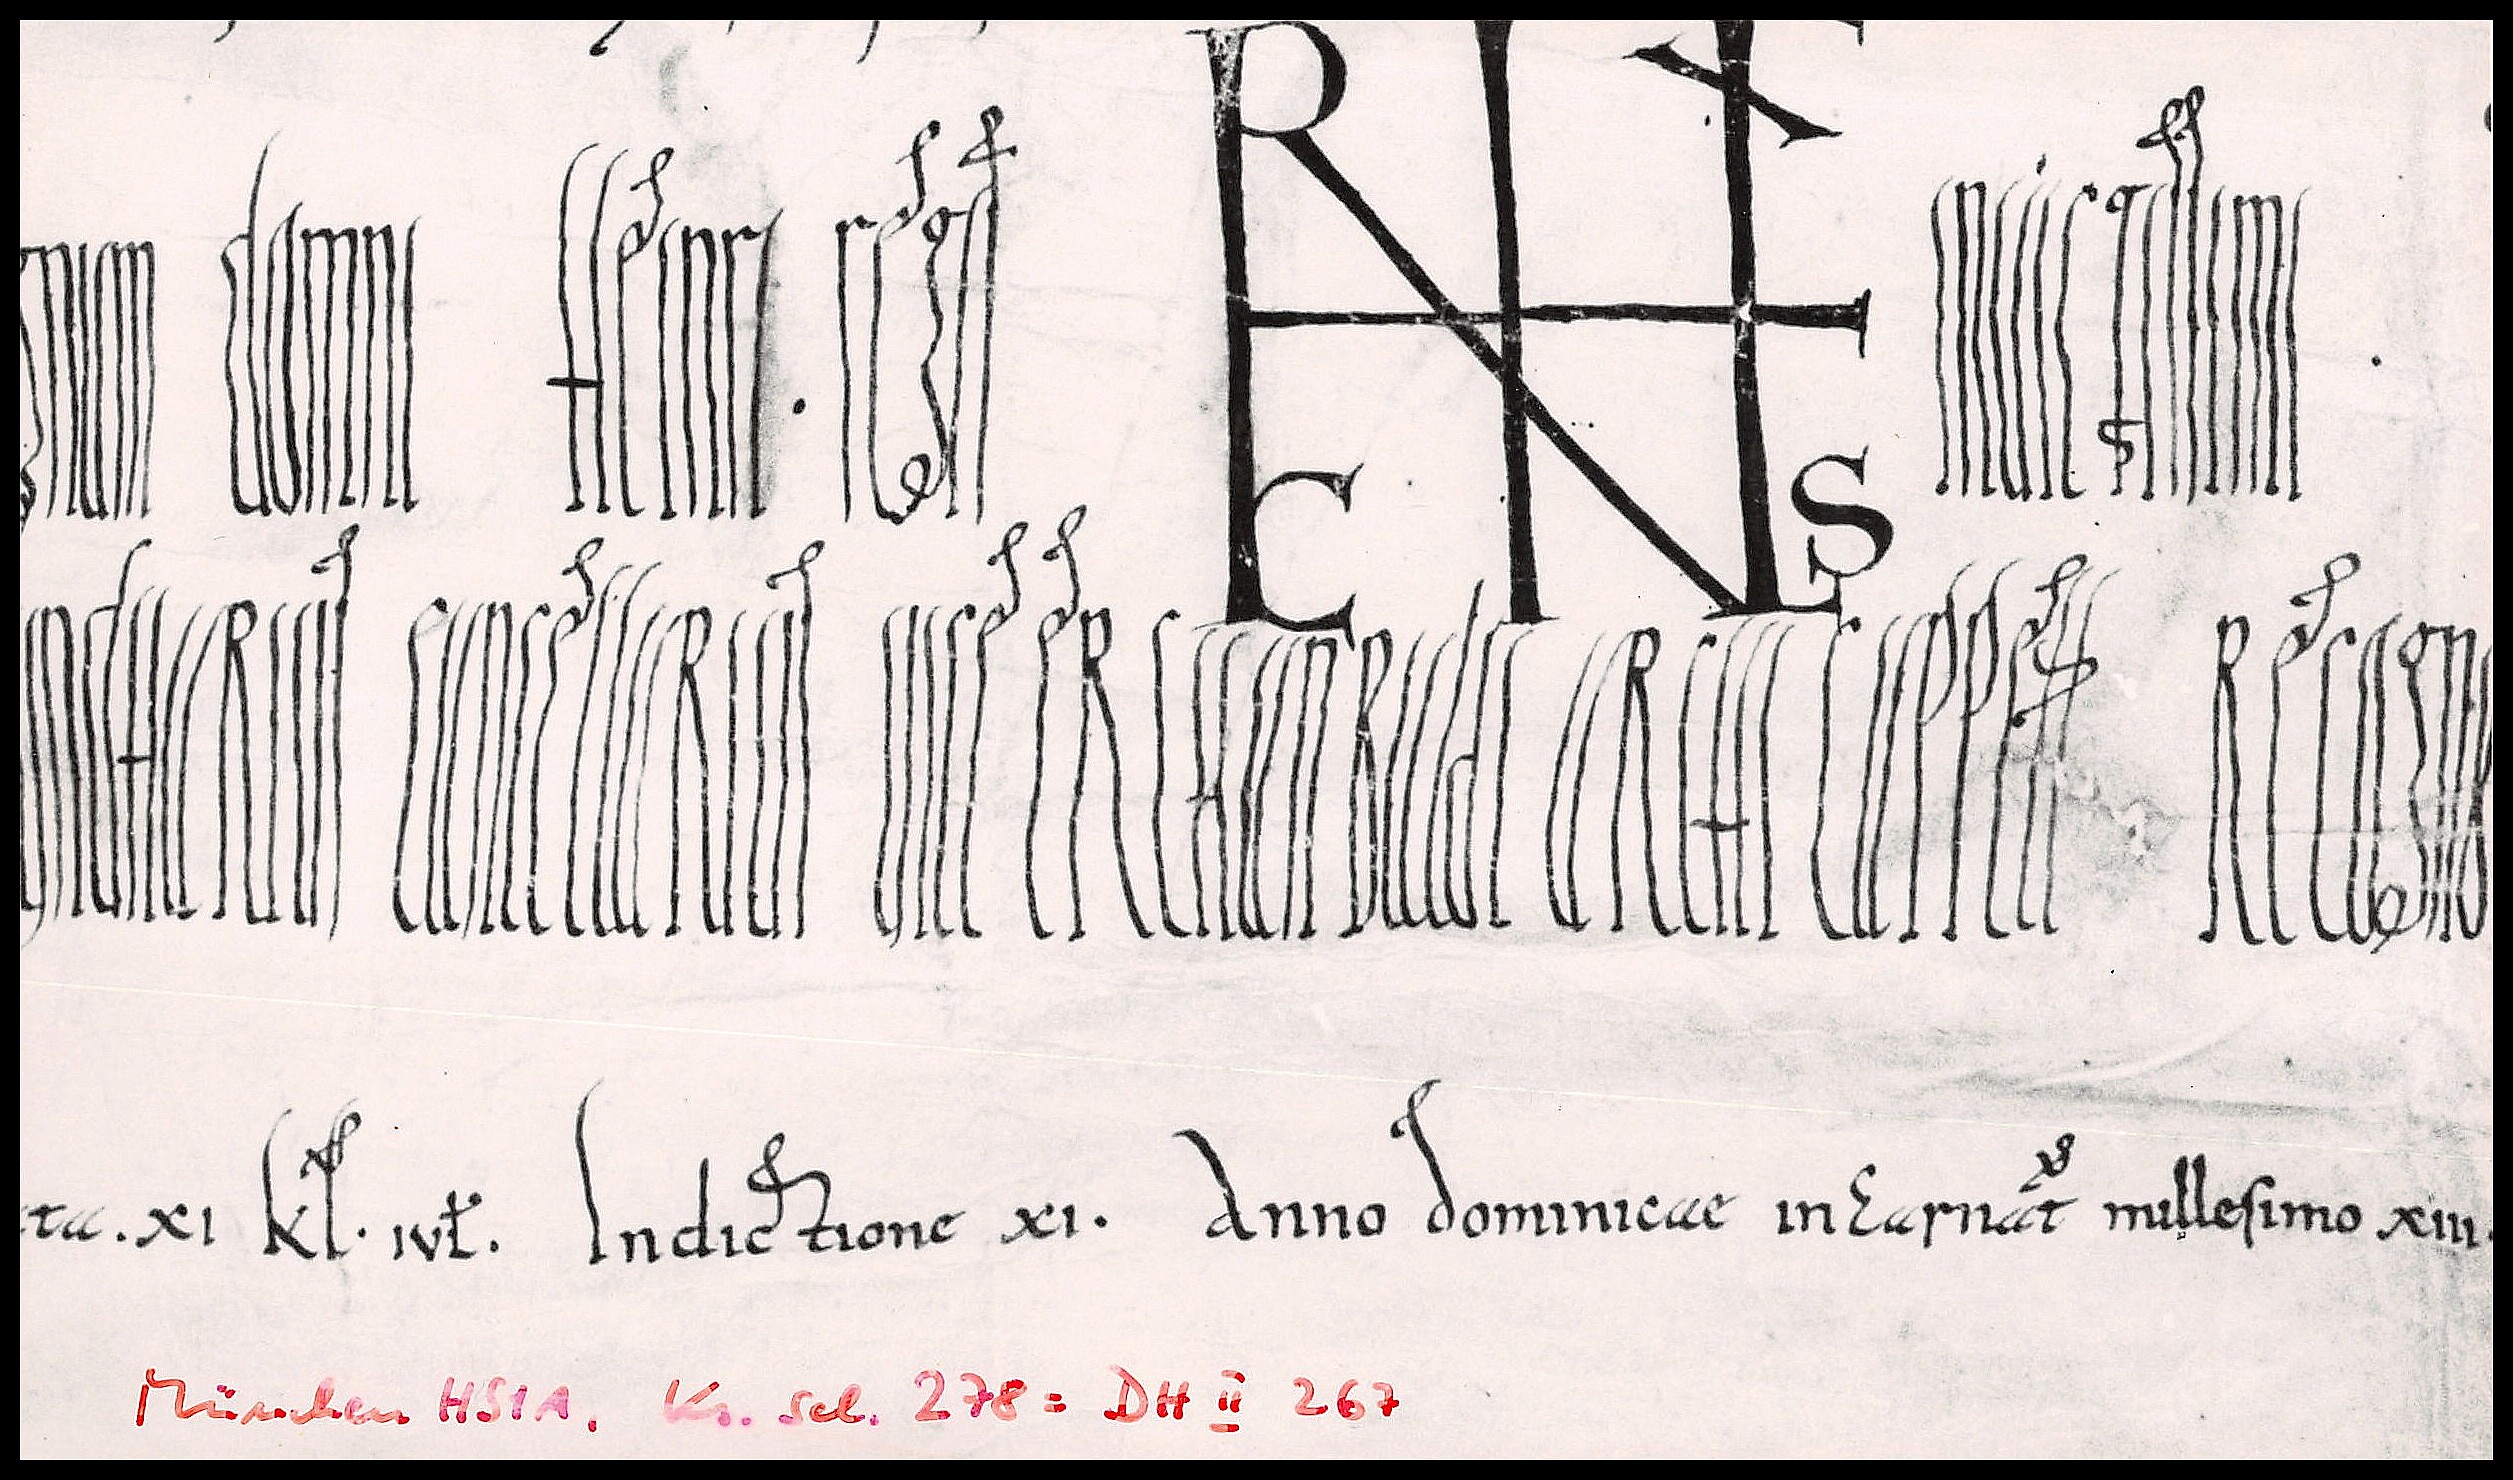 gnum domni Heinrici regis inuictissimi
guntherius cancellarius uice erchanbaldi archicappell recogno
ta. xi kl. iul. Indictione xi. Anno dominicae incarnat millesimo xiii.
München HStA, Ks. sel. 278 = DH II 267